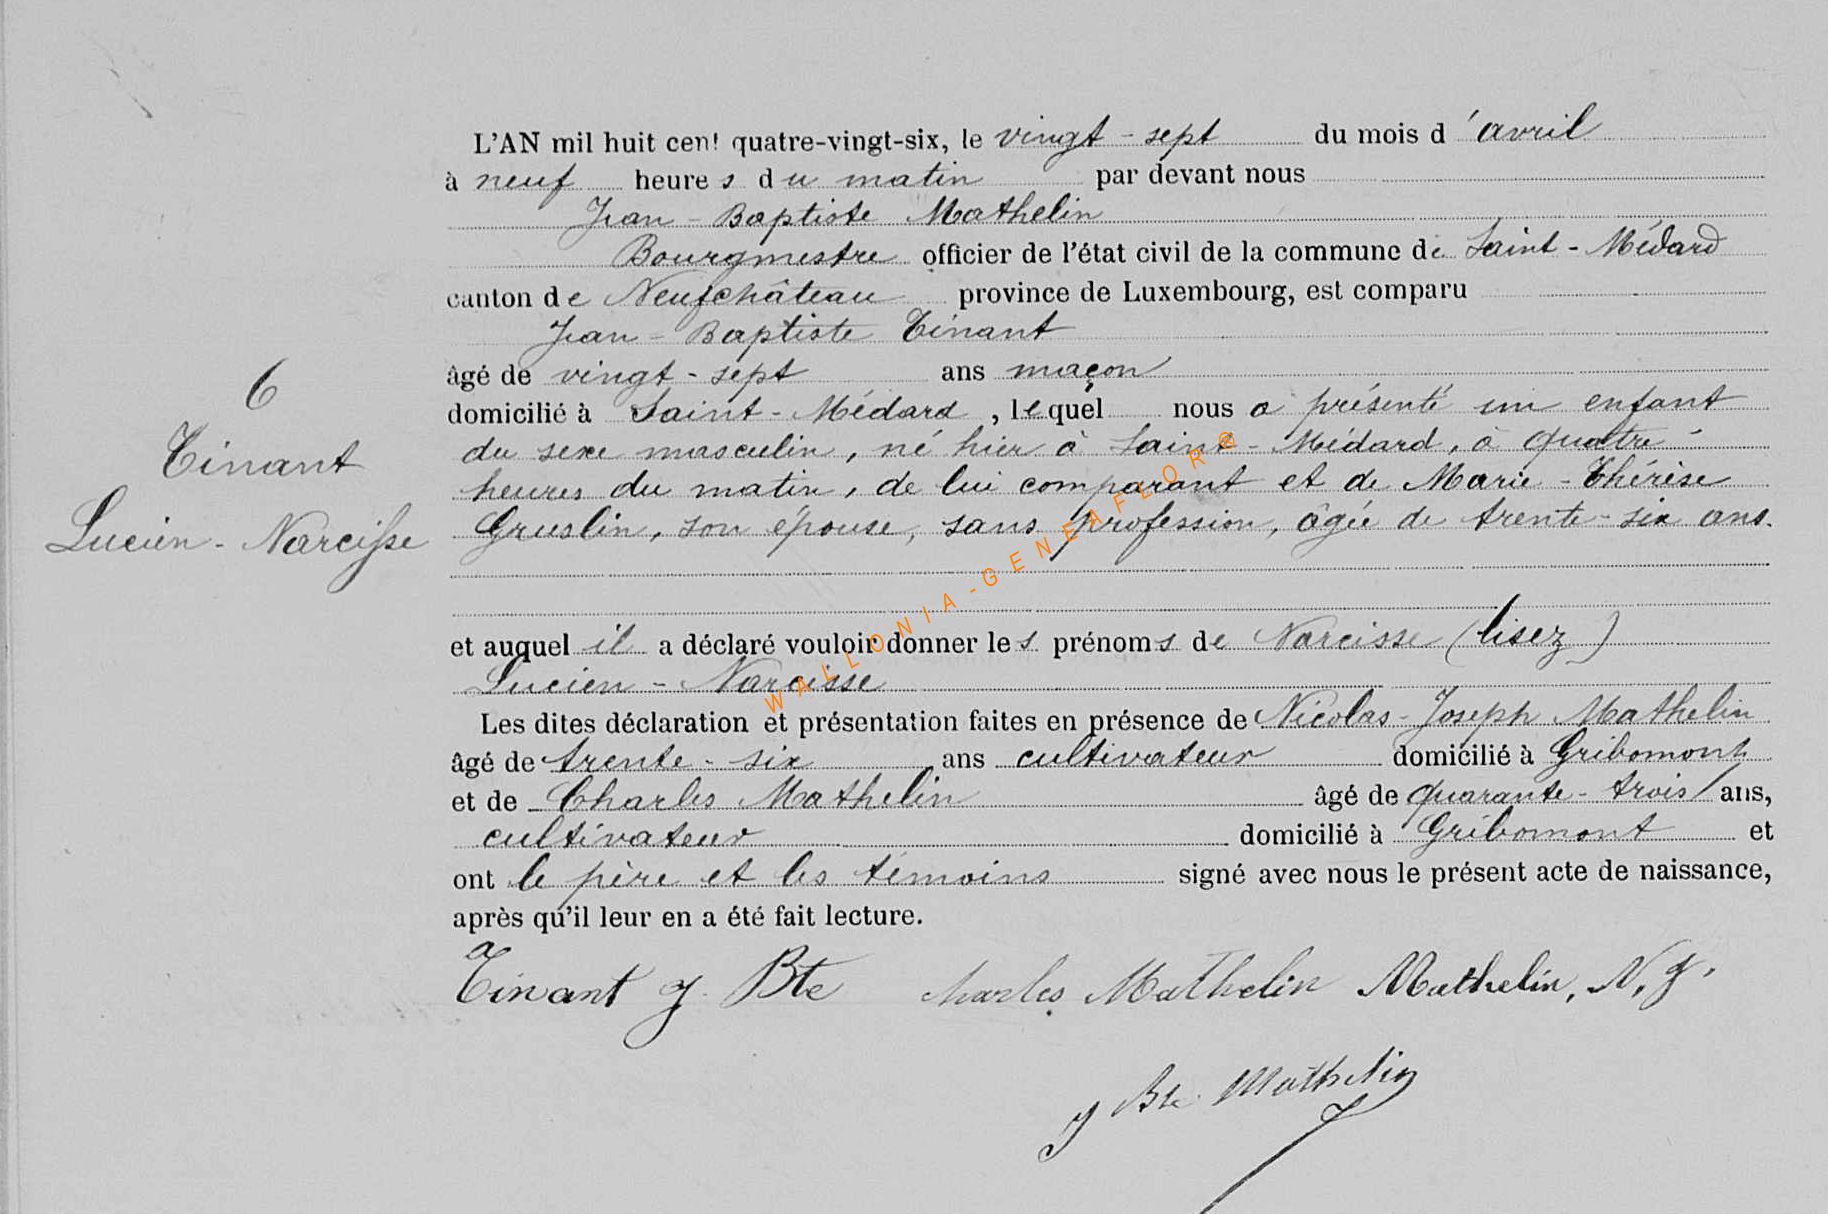 L'AN mil huit cent quatre-vingt-six, le vingt-sept du mois d'avril
à neuf heures du matin par devant nous
Jean-Baptiste Mathelin
Bourgmestre officier de l'état civil de la commune de Saint-Médard
canton de Neufchâteau province de Luxembourg, est comparu
Jean-Baptiste Tinant
âgé de vingt-sept ans maçon
domicilié à Saint-Médard, lequel nous a présenté un enfant
du sexe masculin, né hier à Saint-Médard, à quatre
heures du matin, de lui comparant et de Marie-Thérèse
Gruslin, son épouse, sans profession, âgée de trente-six ans.
6
Tinant
Lucien-Narcisse
et auquel il a déclaré vouloir donner les prénoms de Narcisse (lisez)
Lucien-Narcisse
Les dites déclaration et présentation faites en présence de Nicolas-Joseph Mathelin
âgé de trente-six ans cultivateur domicilié à Gribomont
et de Charles Mathelin âgé de quarante-trois ans,
cultivateur domicilié à Gribomont et
ont le père et les témoins signé avec nous le présent acte de naissance,
après qu'il leur en a été fait lecture.
Tinant J. Bte Charles Mathelin Mathelin, N. J.
J Bte Mathelin
WALLONIA-GENEAFLOR®